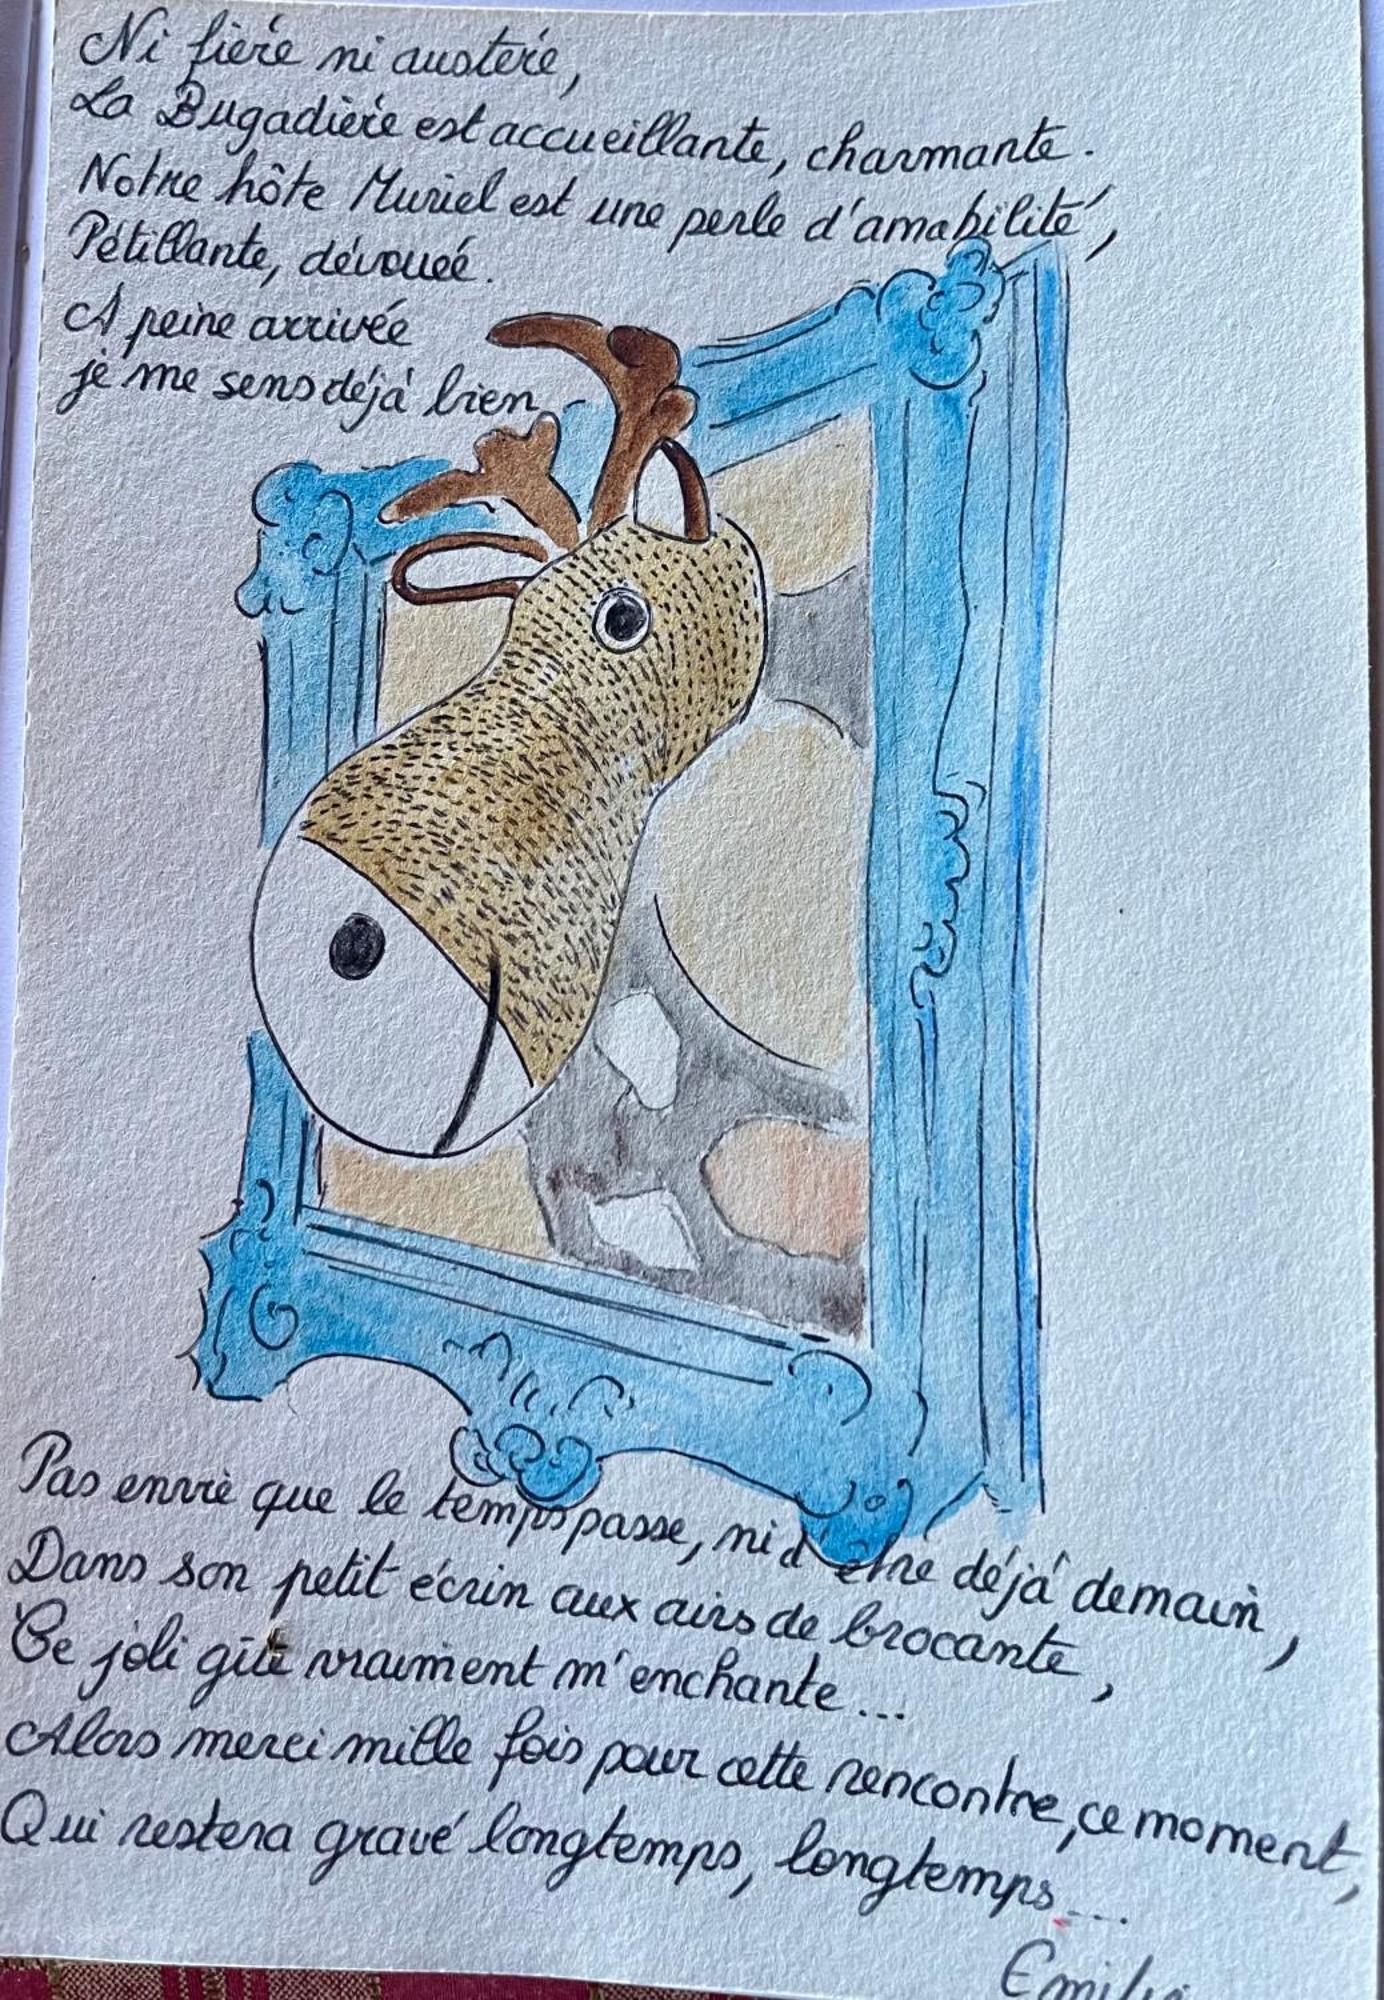 Ni fière ni austère,
La Bugadière est accueillante, charmante.
Notre hôte Muriel est une perle d'amabilité,
Pétillante, dévouée.
A peine arrivée
je me sens déjà bien,
Pas envie que le temps passe, ni d'être déjà demain,
Dans son petit écrin aux airs de brocante,
Ce joli gite vraiment m'enchante...
Alors merci mille fois pour cette rencontre, ce moment,
Qui restera gravé longtemps, longtemps...